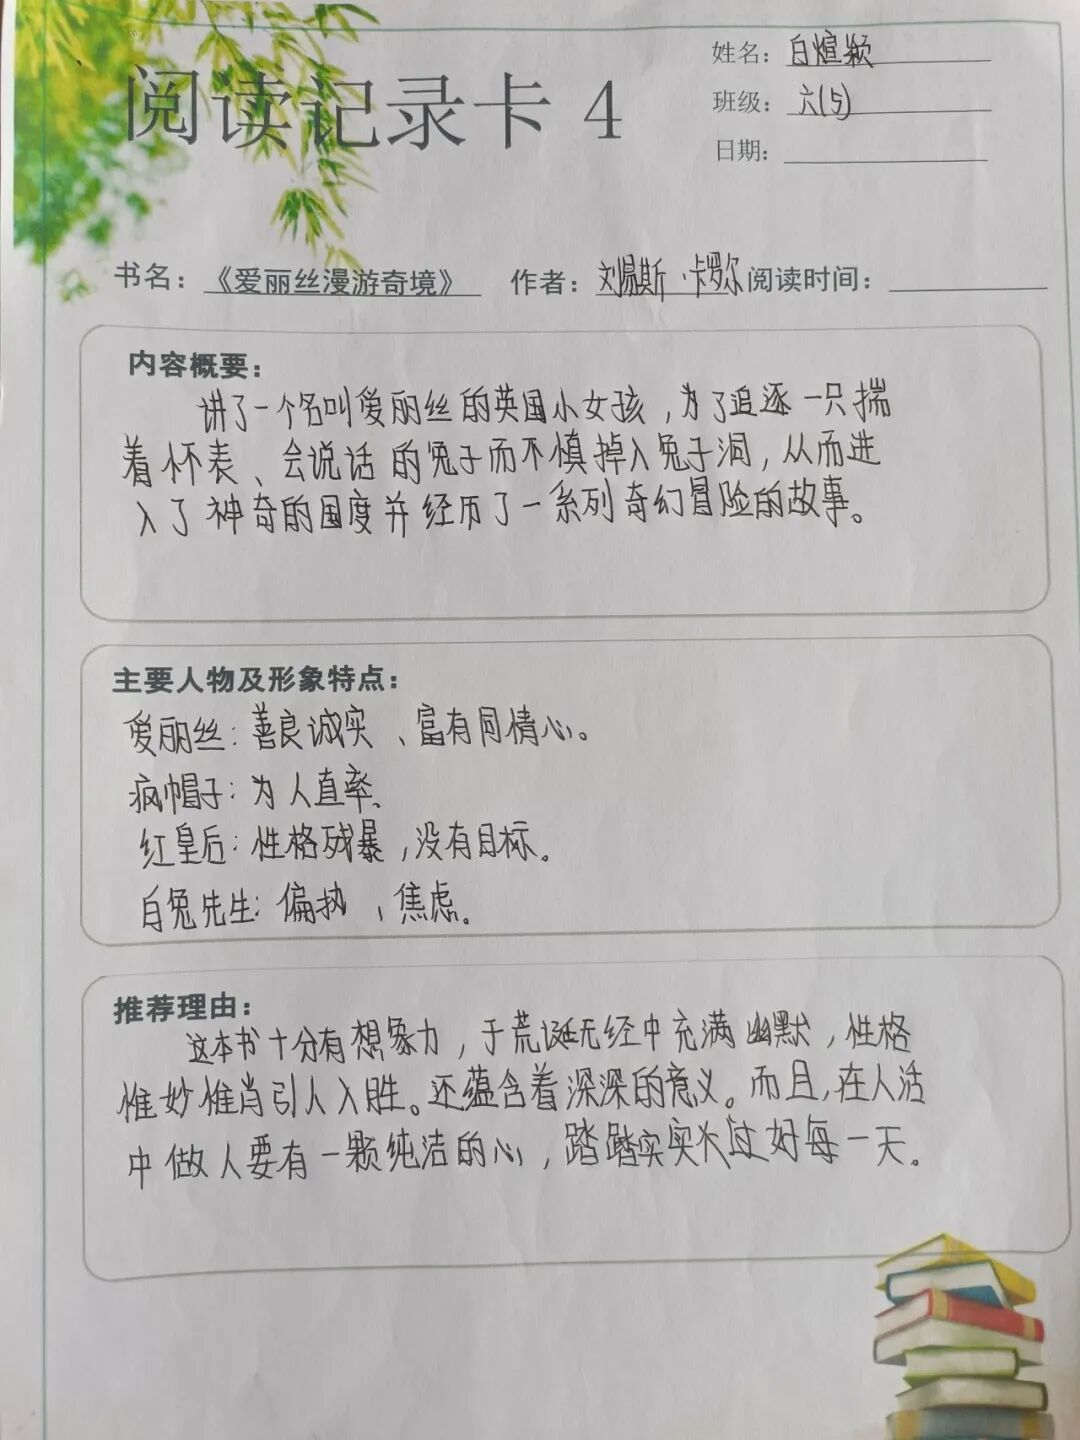 阅读记录卡 4
姓名：白煊颖
班级：六(5)
日期：
书名：《爱丽丝漫游奇境》 作者：刘易斯·卡罗尔 阅读时间：
内容概要：
讲了一个名叫爱丽丝的英国小女孩，为了追逐一只揣
着怀表、会说话的兔子而不慎掉入兔子洞，从而进
入了神奇的国度并经历了一系列奇幻冒险的故事。
主要人物及形象特点：
爱丽丝：善良诚实、富有同情心。
疯帽子：为人直率、
红皇后：性格残暴，没有目标。
白兔先生：偏执，焦虑。
推荐理由：
这本书十分有想象力，于荒诞无经中充满幽默，性格
惟妙惟肖引人入胜。还蕴含着深深的意义。而且，在人活
中做人要有一颗纯洁的心，踏踏实实过好每一天。